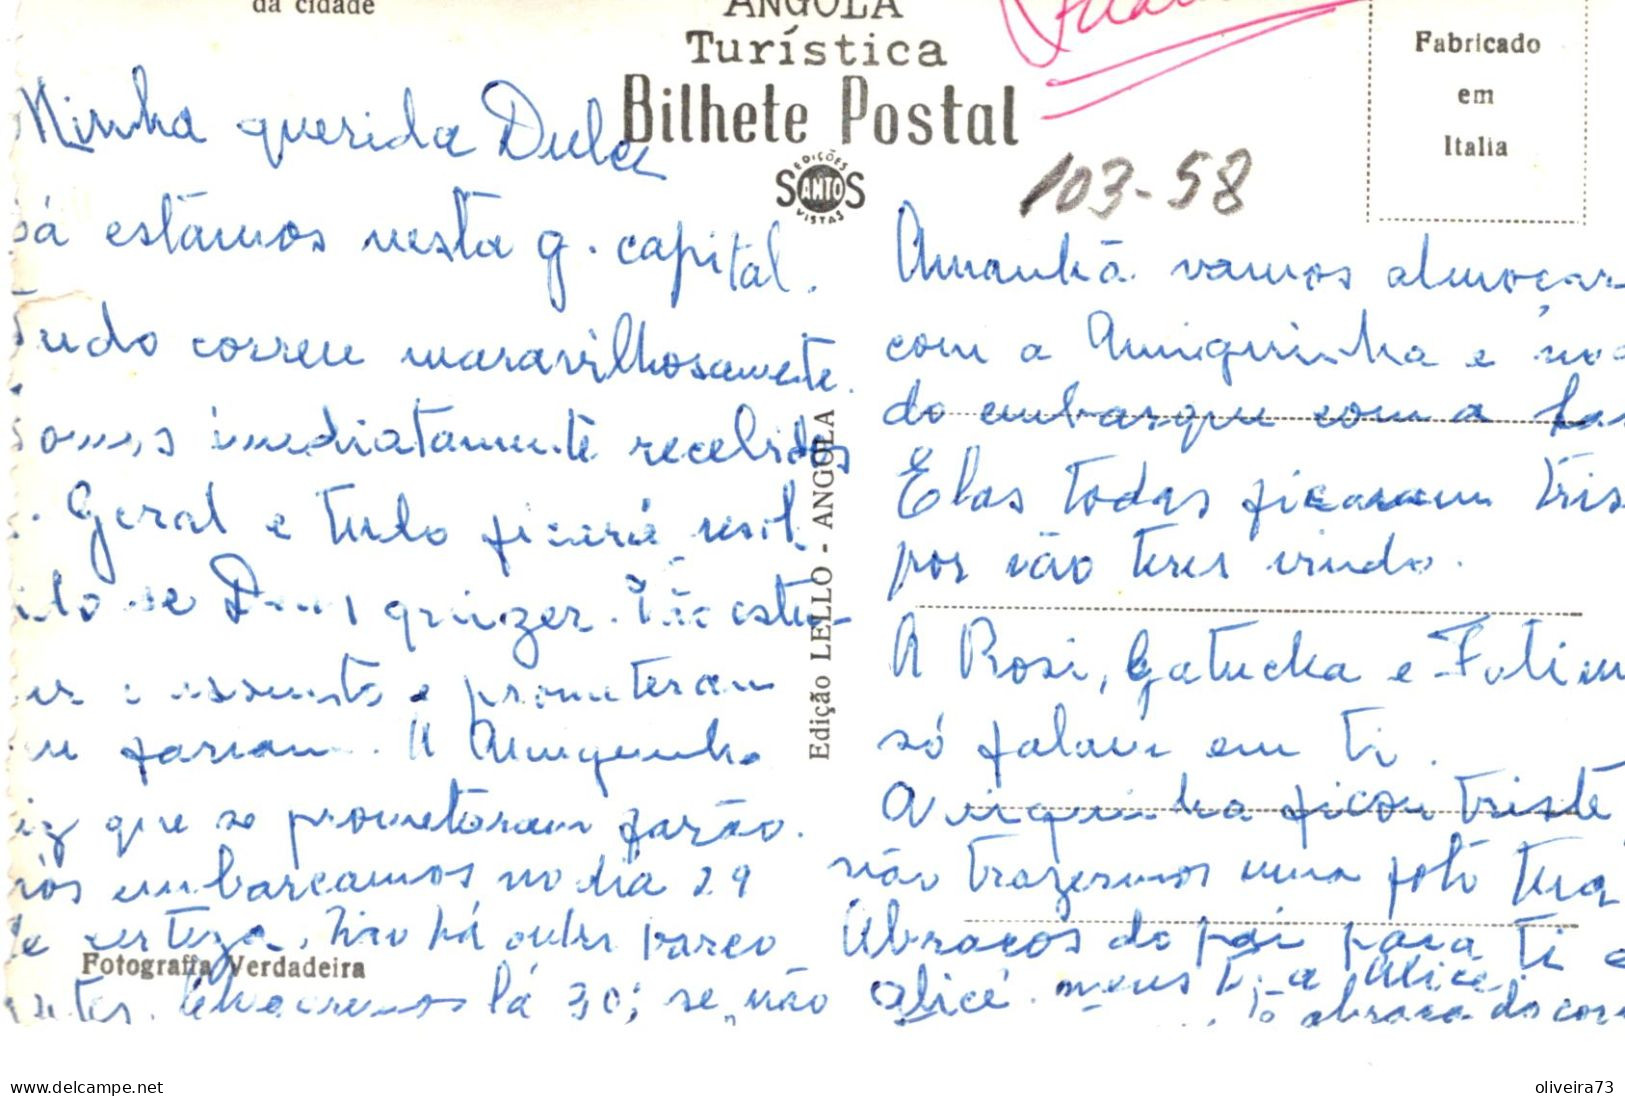 da cidade
ANGOLA
Turística
Bilhete Postal
EDIÇÕES
SANTOS
VISTAS
Fabricado
em
Italia
103-58
Edição LELLO - ANGOLA
Minha querida Dulce
cá estamos nesta g. capital.
Tudo correu maravilhosamente.
Somos imediatamente recebidos
Geral e tudo ficará resol
vido se Deus quizer. Vão estu-
dar o assunto e prometeram
que fariam. A Amiguinha
diz que se prometeram farão.
Nós embarcamos no dia 29
de certeza. Não há outro barco
antes. lá 30; se não
Fotografia Verdadeira
Amanhã vamos almoçar
com a Amiguinha e no
do embarque com a
Elas todas ficaram tris
por não teres vindo.
A Rosi, Gatucha e Fatim
só falam em ti.
A ficou triste
não trazermos uma foto tua
Abraços do pai para ti e
Alice. meus ti a Alice.
abraça do cor
www.delcampe.net
oliveira73